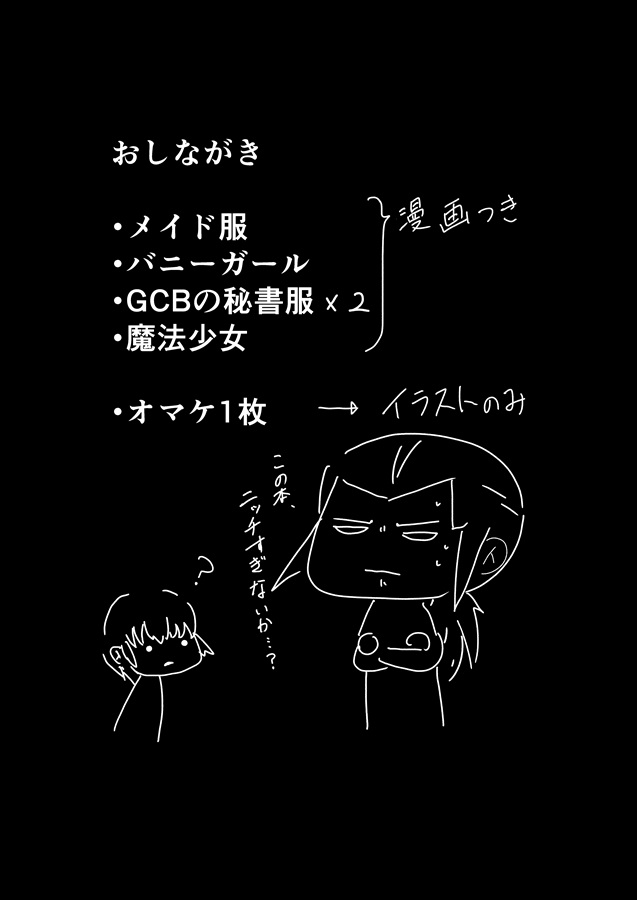 おしながき
・メイド服
・バニーガール
・GCBの秘書服 ×2
・魔法少女
漫画つき
・オマケ1枚 → イラストのみ
この本、
ニッチすぎないか…?
?